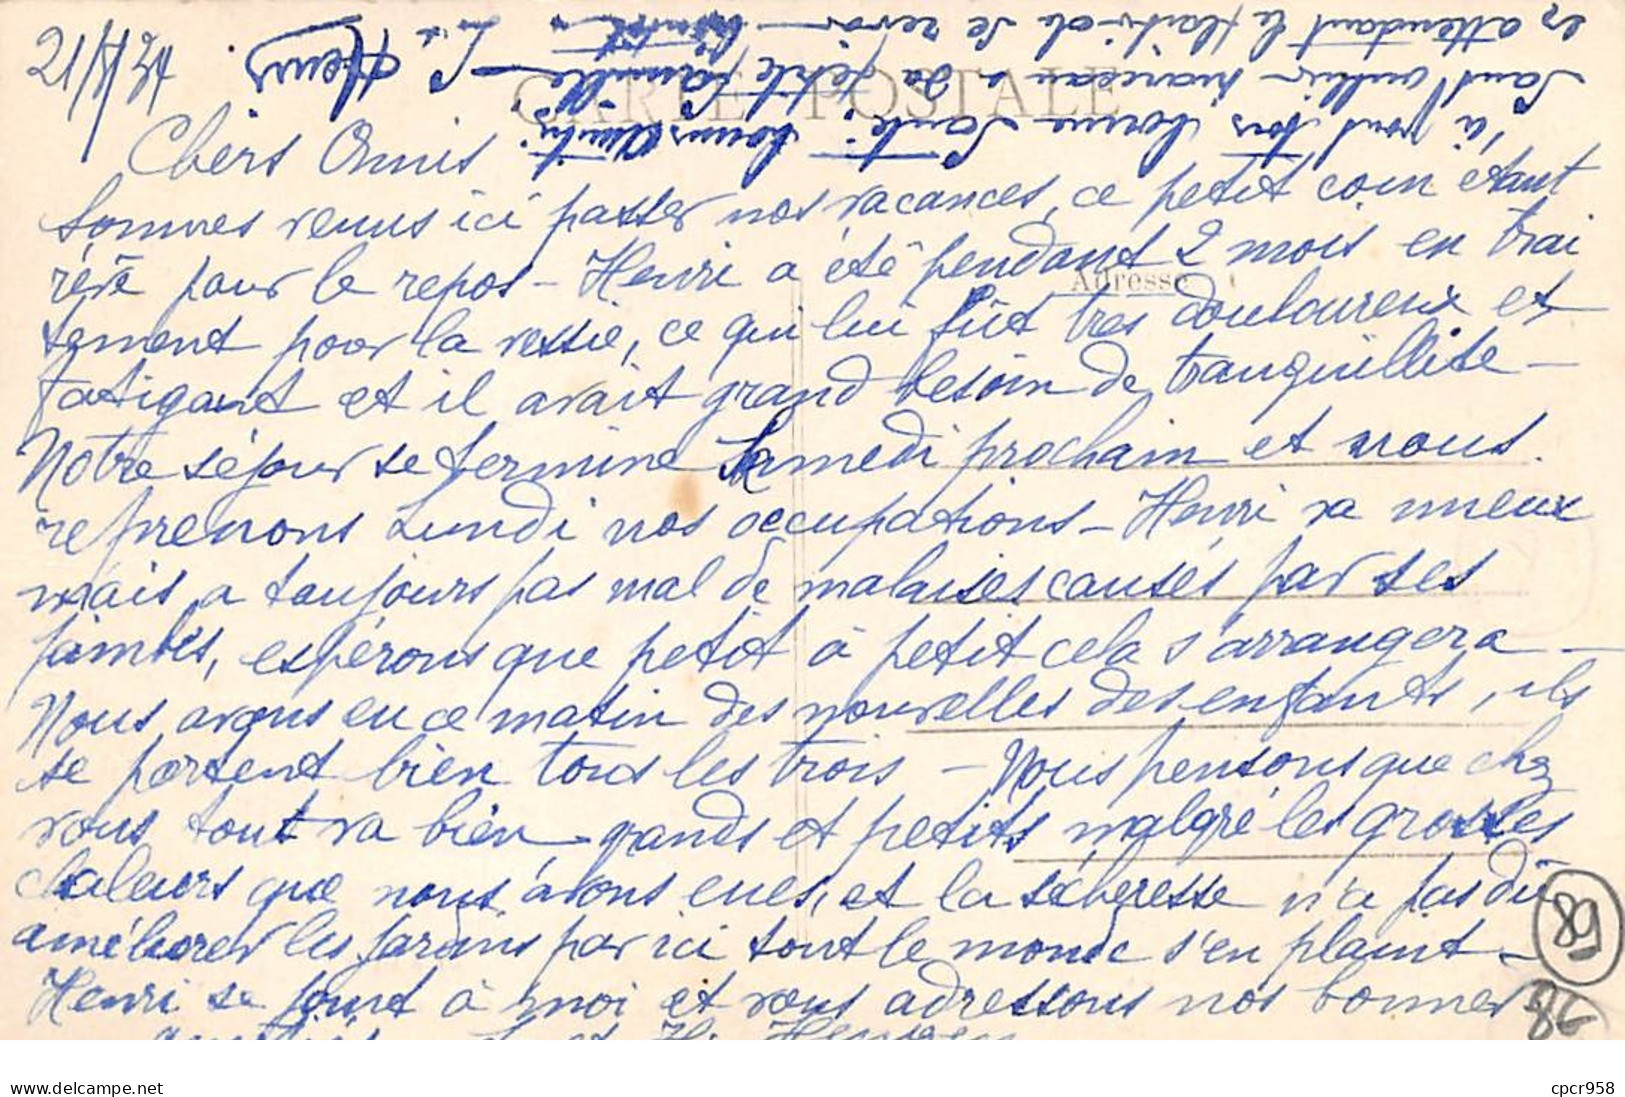 CARTE POSTALE
Adresse
Chers Amis
Sommes venus ici passer nos vacances, ce petit coin étant
rêvé pour le repos - Henri a été pendant 2 mois en trai
tement pour la vessie, ce qui lui fût très douloureux et
fatigant et il avait grand besoin de tranquillité -
Notre séjour se termine Samedi prochain et nous
reprenons Lundi nos occupations - Henri va mieux
mais a toujours pas mal de malaises causés par ses
jambes, espérons que petit à petit cela s'arrangera -
Nous avons eu ce matin des nouvelles des enfants, ils
se portent bien tous les trois - Nous pensons que chez
vous tout va bien grands et petits malgré les grosses
chaleurs que nous avons eues, et la sécheresse n'a pas dû
améliorer les jardins par ici tout le monde s'en plaint -
Henri se joint à moi et vous adressons nos bonnes
amitiés
à vous tous bonne santé
sans oublier sa petite famille
en attendant le plaisir de se revoir bientôt
89
86
delcampe.net
cpcr958